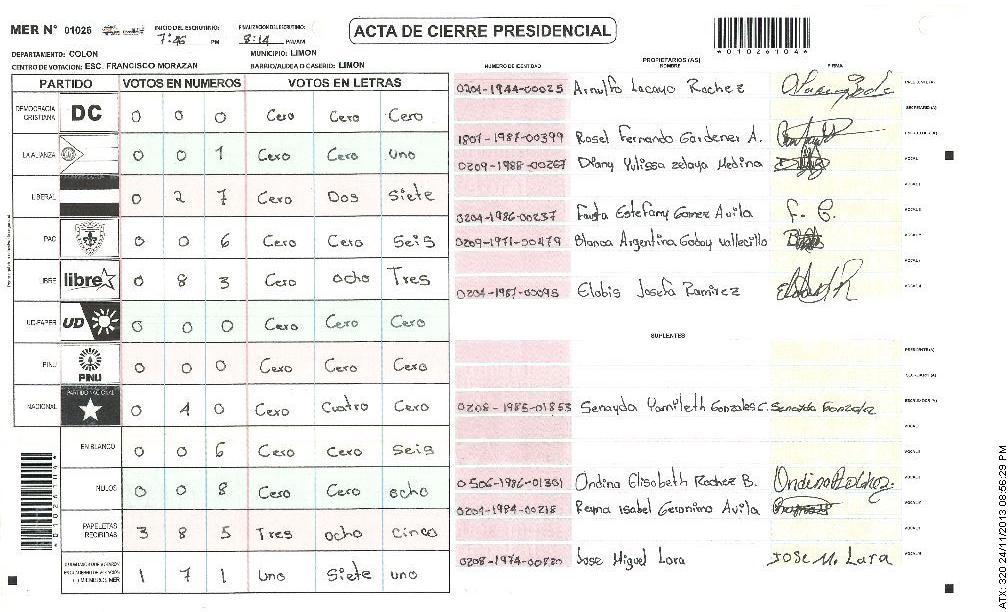 MER N° 01026
INICIO DEL ESCRUTINIO:
7:46 PM
FINALIZACION DEL ESCRUTINIO:
8:14 PM/AM
ACTA DE CIERRE PRESIDENCIAL
*0102610A*
DEPARTAMENTO: COLON
MUNICIPIO: LIMON
CENTRO DE VOTACION: ESC. FRANCISCO MORAZAN
BARRIO/ALDEA O CASERIO: LIMON
PARTIDO VOTOS EN NUMEROS VOTOS EN LETRAS
DEMOCRACIA CRISTIANA DC 0 0 0 Cero Cero Cero
LA ALIANZA 0 0 1 Cero Cero uno
LIBERAL 0 2 7 Cero Dos Siete
PAC 0 0 6 Cero Cero Seis
LIBRE libre 0 8 3 Cero ocho Tres
UD-FAPER UD 0 0 0 Cero Cero Cero
PINU PINU 0 0 0 Cero Cero Cero
NACIONAL PARTIDO NACIONAL 0 4 0 Cero Cuatro Cero
EN BLANCO 0 0 6 Cero Cero Seis
NULOS 0 0 8 Cero Cero ocho
PAPELETAS RECIBIDAS 3 8 5 Tres ocho cinco
1 7 1 uno Siete uno
PROPIETARIOS (AS)
NUMERO DE IDENTIDAD NOMBRE FIRMA
0204-1944-00025 Arnulfo Lacayo Rochez
1807-1987-00399 Rosel Fernando Gardener A.
0209-1988-00267 Diany Yulissa Zelaya Medina
0204-1986-00237 Fausta Estefany Gomez Avila F. G.
0209-1971-00479 Blanca Argentina Godoy Vallecillo
0204-1987-00095 Elobis Josefa Ramirez
SUPLENTES
0208-1985-01853 Senayda Yamileth Gonzales C. Senayda Gonzalez
0506-1986-01301 Ondina Elisabeth Rochez B.
0204-1984-00218 Reyna Isabel Geronimo Avila
0208-1974-00220 Jose Miguel Lara Jose M. Lara
ATX: 320 24/11/2013 08:56:29 PM